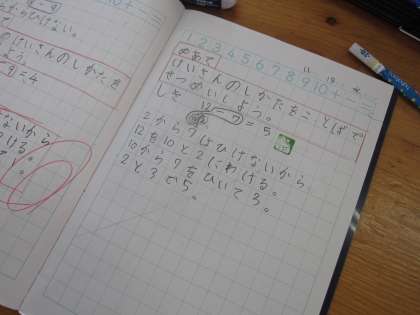 らひけない。
けいさんのしかたを
-9=4
ないから
ける。
1 2 3 4 5 6 7 8 9 10 + - =
11 19 水
めあて
けいさんのしかたをことばで
せつめいしよう。
しき 12-7=5
2から7はひけないから
12を10と2にわける。
10から7をひいて3。
2と3で5。